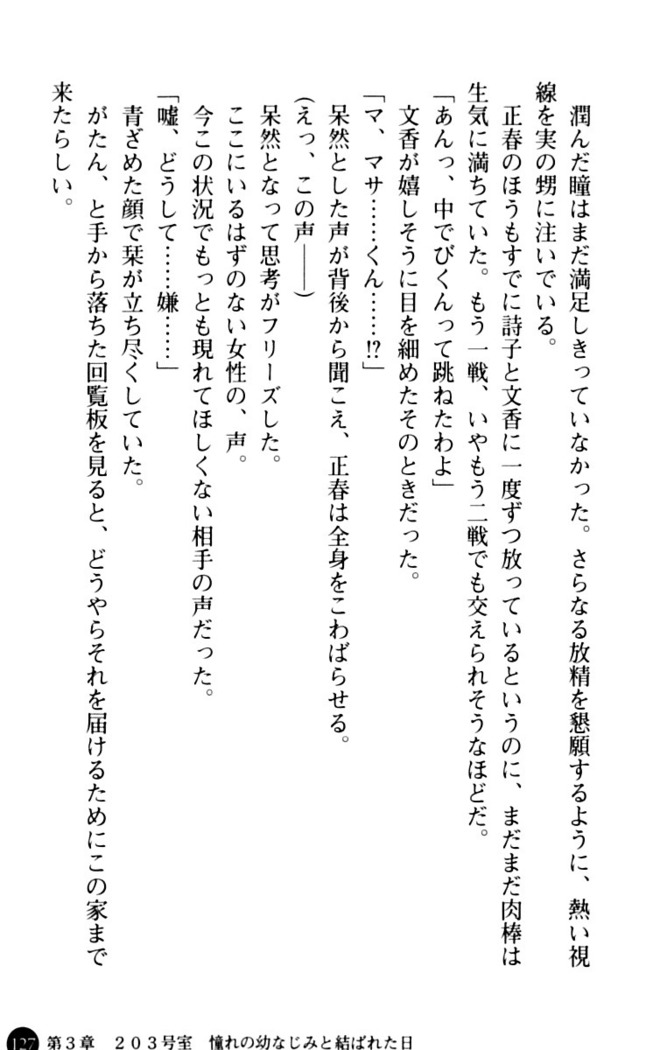 潤んだ瞳はまだ満足しきっていなかった。さらなる放精を懇願するように、熱い視
線を実の甥に注いでいる。
正春のほうもすでに詩子と文香に一度ずつ放っているというのに、まだまだ肉棒は
生気に満ちていた。もう一戦、いやもう二戦でも交えられそうなほどだ。
「あんっ、中でびくんって跳ねたわよ」
文香が嬉しそうに目を細めたそのときだった。
「マ、マサ……くん……!?」
呆然とした声が背後から聞こえ、正春は全身をこわばらせる。
(えっ、この声――)
呆然となって思考がフリーズした。
ここにいるはずのない女性の、声。
今この状況でもっとも現れてほしくない相手の声だった。
「嘘、どうして……嫌……」
青ざめた顔で栞が立ち尽くしていた。
がたん、と手から落ちた回覧板を見ると、どうやらそれを届けるためにこの家まで
来たらしい。
127 第3章 203号室 憧れの幼なじみと結ばれた日